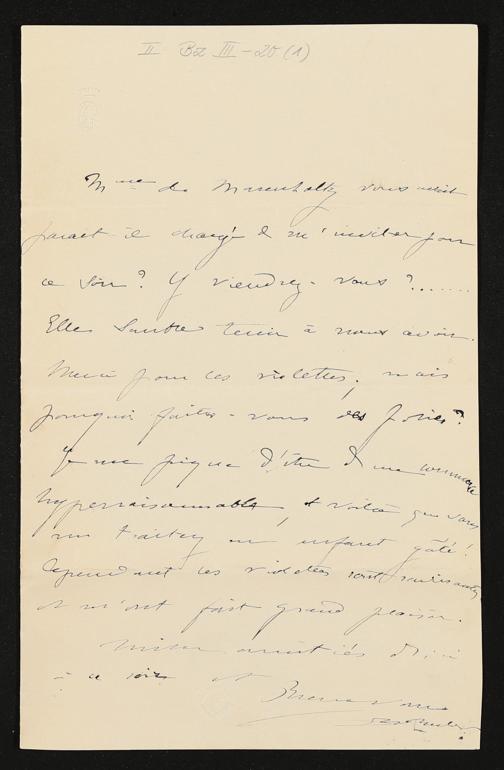 II Bz III - 20 (1)
Mme de Marenholtz vous avait
parait il chargé de m'inviter pour
ce soir? Y viendrez-vous?......
Elle semble tenir à nous avoir.
Merci pour les violettes, mais
pourquoi faites-vous des folies?
Je me pique d'être d'une
hyperraisonnable, et voilà que vous
me traitez en enfant gâté!
Cependant ces violettes sont ravissantes
et m'ont fait grand plaisir.
Mille amitiés d'ici
à ce soir et